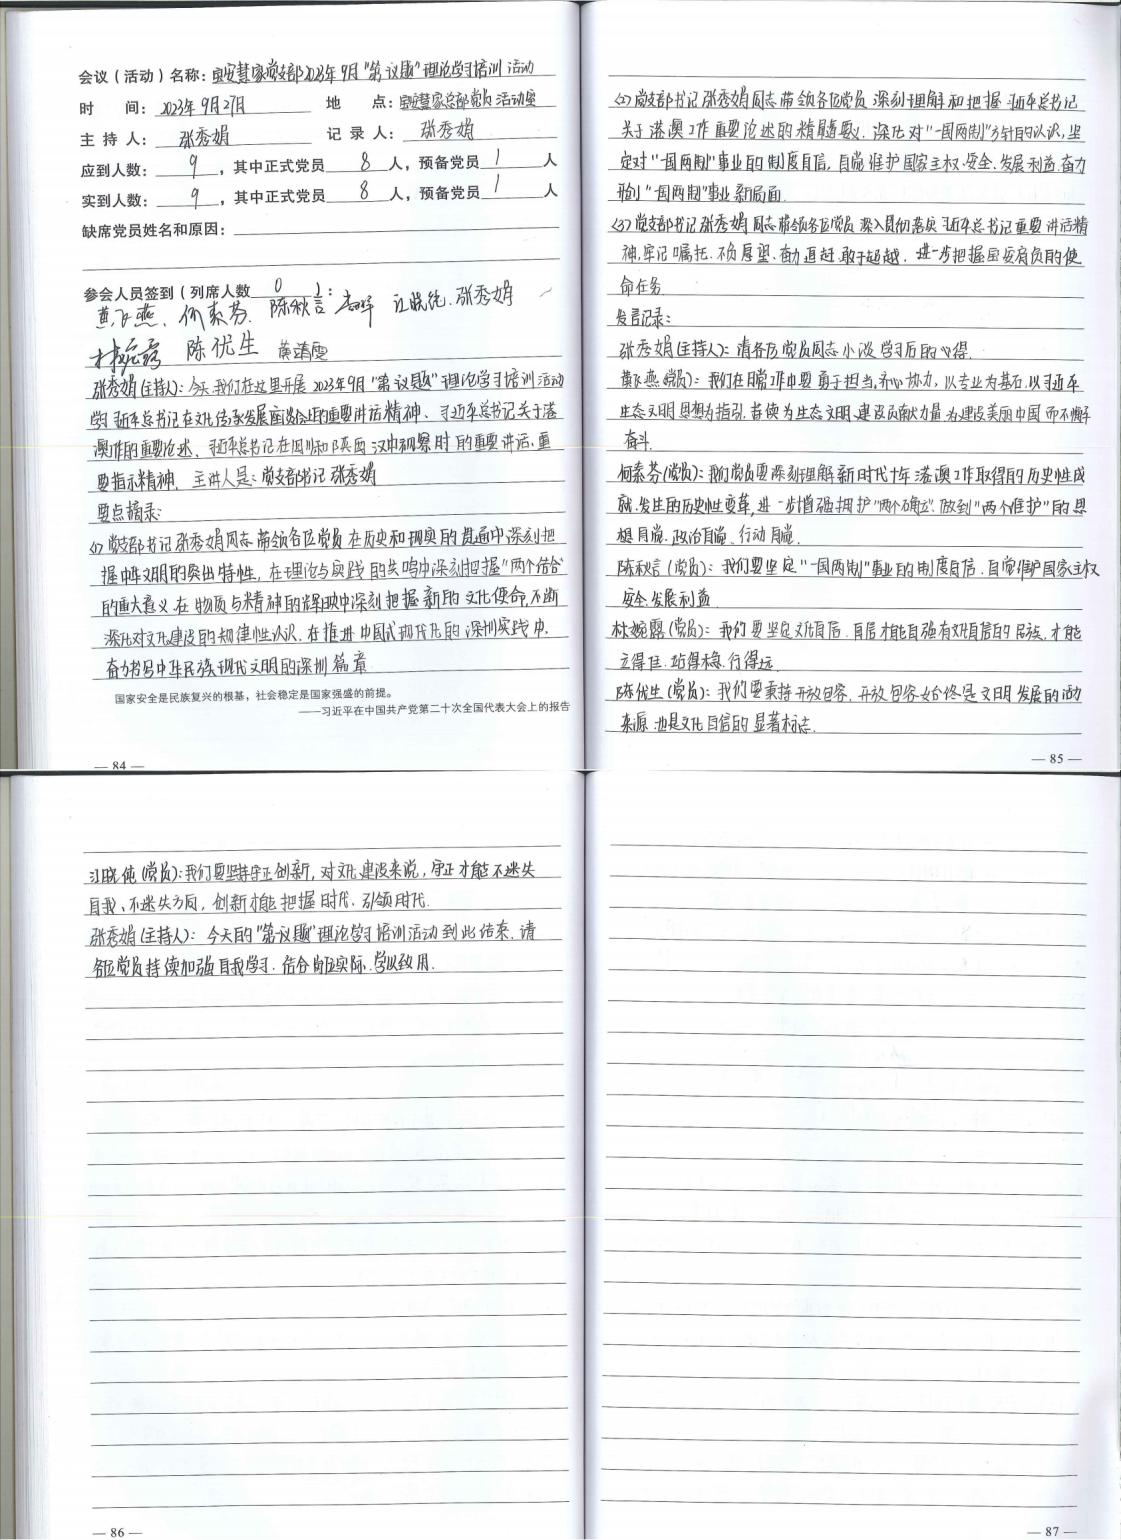 会议（活动）名称：宝安慧家党支部2023年9月“第一议题”理论学习培训活动
时 间：2023年9月27日 地 点：宝安慧家总部党员活动室
主持人：张秀娟 记录人：张秀娟
应到人数：9，其中正式党员8人，预备党员1人
实到人数：9，其中正式党员8人，预备党员1人
缺席党员姓名和原因：
参会人员签到（列席人数0）：
黄飞燕、何素芬、陈秋言 江晓纯、张秀娟
林婉露 陈优生 黄靖雯
张秀娟(主持人)：今天我们在这里开展2023年9月“第一议题”理论学习培训活动
学习习近平总书记在文化传承发展座谈会上的重要讲话精神、习近平总书记关于港
澳工作的重要论述、习近平总书记在四川和陕西汉中视察时的重要讲话、重
要指示精神．主讲人是：党支部书记张秀娟
要点摘录：
(1)党支部书记张秀娟同志带领各位党员在历史和现实的贯通中深刻把
握中华文明的突出特性，在理论与实践的共鸣中深刻把握“两个结合”
的重大意义在物质与精神的辉映中深刻把握新的文化使命,不断
深化对文化建设的规律性认识．在推进中国式现代化的深圳实践中．
奋力书写中华民族现代文明的深圳篇章
国家安全是民族复兴的根基，社会稳定是国家强盛的前提。
——习近平在中国共产党第二十次全国代表大会上的报告
— 84 —
(2)党支部书记张秀娟同志带领各位党员深刻理解和把握习近平总书记
关于港澳工作重要论述的精髓要义．深化对“一国两制”方针的认识，坚
定对“一国两制”事业的制度自信，自觉维护国家主权、安全、发展利益．奋力
开创“一国两制”事业新局面．
(3)党支部书记张秀娟同志带领各位党员深入贯彻落实习近平总书记重要讲话精
神，牢记嘱托．不负厚望．奋力追赶敢于超越．进一步把握宝安肩负的使
命任务
发言记录：
张秀娟(主持人)：请各位党员同志小谈学习后的心得．
黄飞燕(党员)：我们在日常工作中要勇于担当，齐心协力，以专业为基石，以习近平
生态文明思想为指引．持续为生态文明建设贡献力量为建设美丽中国而不懈
奋斗．
何素芬(党员)：我们党员要深刻理解新时代十年港澳工作取得的历史性成
就．发生的历史性变革，进一步增强拥护“两个确立”．做到“两个维护”的思
想自觉．政治自觉、行动自觉．
陈秋言(党员)：我们要坚定“一国两制”事业的制度自信．自觉维护国家主权
安全．发展利益．
林婉露(党员)：我们要坚定文化自信．自信才能自强有文化自信的民族．才能
立得住．站得稳．行得远．
陈优生(党员)：我们要秉持开放包容．开放包容始终是文明发展的活动
来源．也是文化自信的显著标志．
— 85 —
江晓纯(党员)：我们要坚持守正创新，对文化建设来说，守正才能不迷失
自我、不迷失方向，创新才能把握时代．引领时代．
张秀娟(主持人)：今天的“第一议题”理论学习培训活动到此结束．请
各位党员持续加强自我学习．结合岗位实际．学以致用．
— 86 —
— 87 —